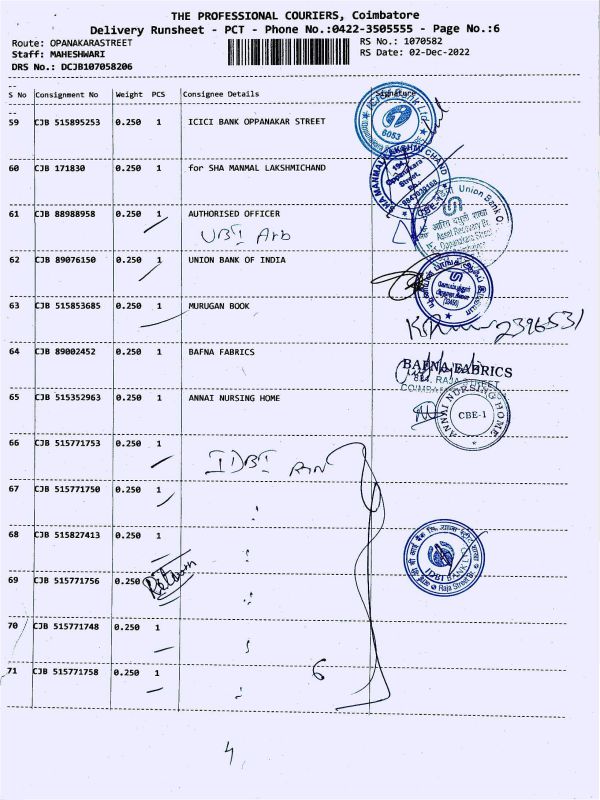 THE PROFESSIONAL COURIERS, Coimbatore
Delivery Runsheet - PCT - Phone No.:0422-3505555 - Page No.:6
Route: OPANAKARASTREET RS No.: 1070582
Staff: MAHESHWARI RS Date: 02-Dec-2022
DRS No.: DCJB107058206
S No Consignment No Weight PCS Consignee Details Signature
59 CJB 515895253 0.250 1 ICICI BANK OPPANAKAR STREET
6053
60 CJB 171830 0.250 1 for SHA MANMAL LAKSHMICHAND
SHA MANMAL LAKSHMI CHAND
Oppanakara
Street,
61 CJB 88988958 0.250 1 AUTHORISED OFFICER
UBI Arb
Union Bank O
Asset Recovery Br.
Oppanakara Street
62 CJB 89076150 0.250 1 UNION BANK OF INDIA
63 CJB 515853685 0.250 1 MURUGAN BOOK
2396531
64 CJB 89002452 0.250 1 BAFNA FABRICS
BAFNA FABRICS
RAJA STREET
65 CJB 515352963 0.250 1 ANNAI NURSING HOME
ANNAI NURSING HOME
CBE-1
66 CJB 515771753 0.250 1
IDBI
67 CJB 515771750 0.250 1
68 CJB 515827413 0.250 1
IDBI BANK
Raja Street Br.
69 CJB 515771756 0.250
Return
70 CJB 515771748 0.250 1
71 CJB 515771758 0.250 1
6
4